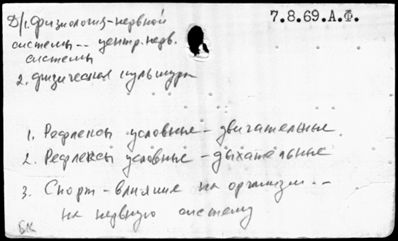 7.8.69.А.Ф.
Д/с. Физиология - нервной
системы -- центр. нерв.
системы
2. физическая культура
1. Рефлексы условные - двигательные.
2. Рефлексы условные - дыхательные
3. Спорт - влияние на организм --
на нервную систему
БК